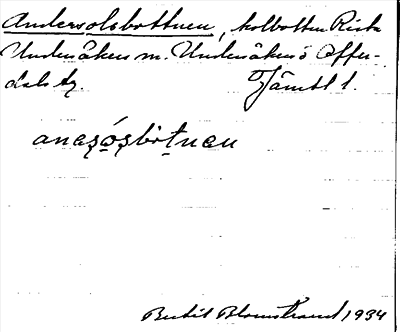 Andersolsbottnen, kolbotten Rista
Undersåkers sn. Undersåkers o Offer-
dals tg. Jämtl l.
anaṣóṣbòtnen
Bertil Blomstrand 1934